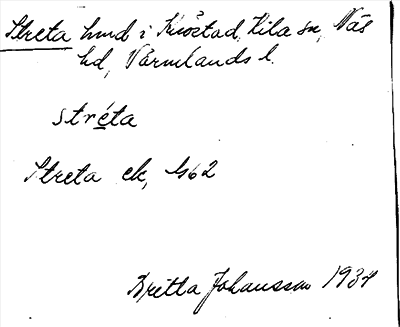 Streta hmd i Knöstad, Kila sn, Näs
hd, Värmlands l.
stréta
Streta ek, 1/62
Britta Johansson 1934